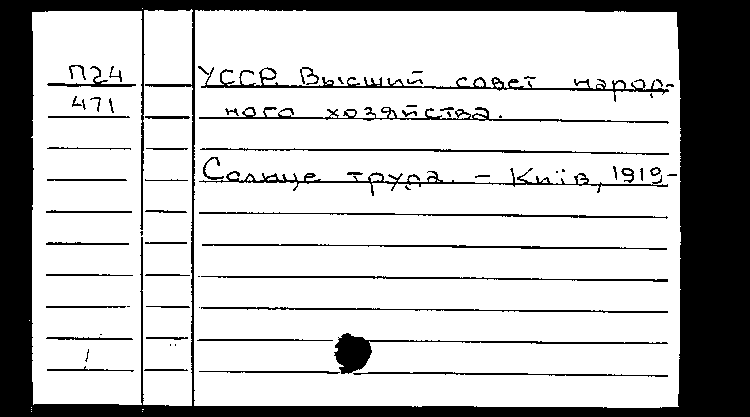 П24
471
УССР. Высший совет народ-
ного хозяйства.
Солнце труда. - Київ, 1919-